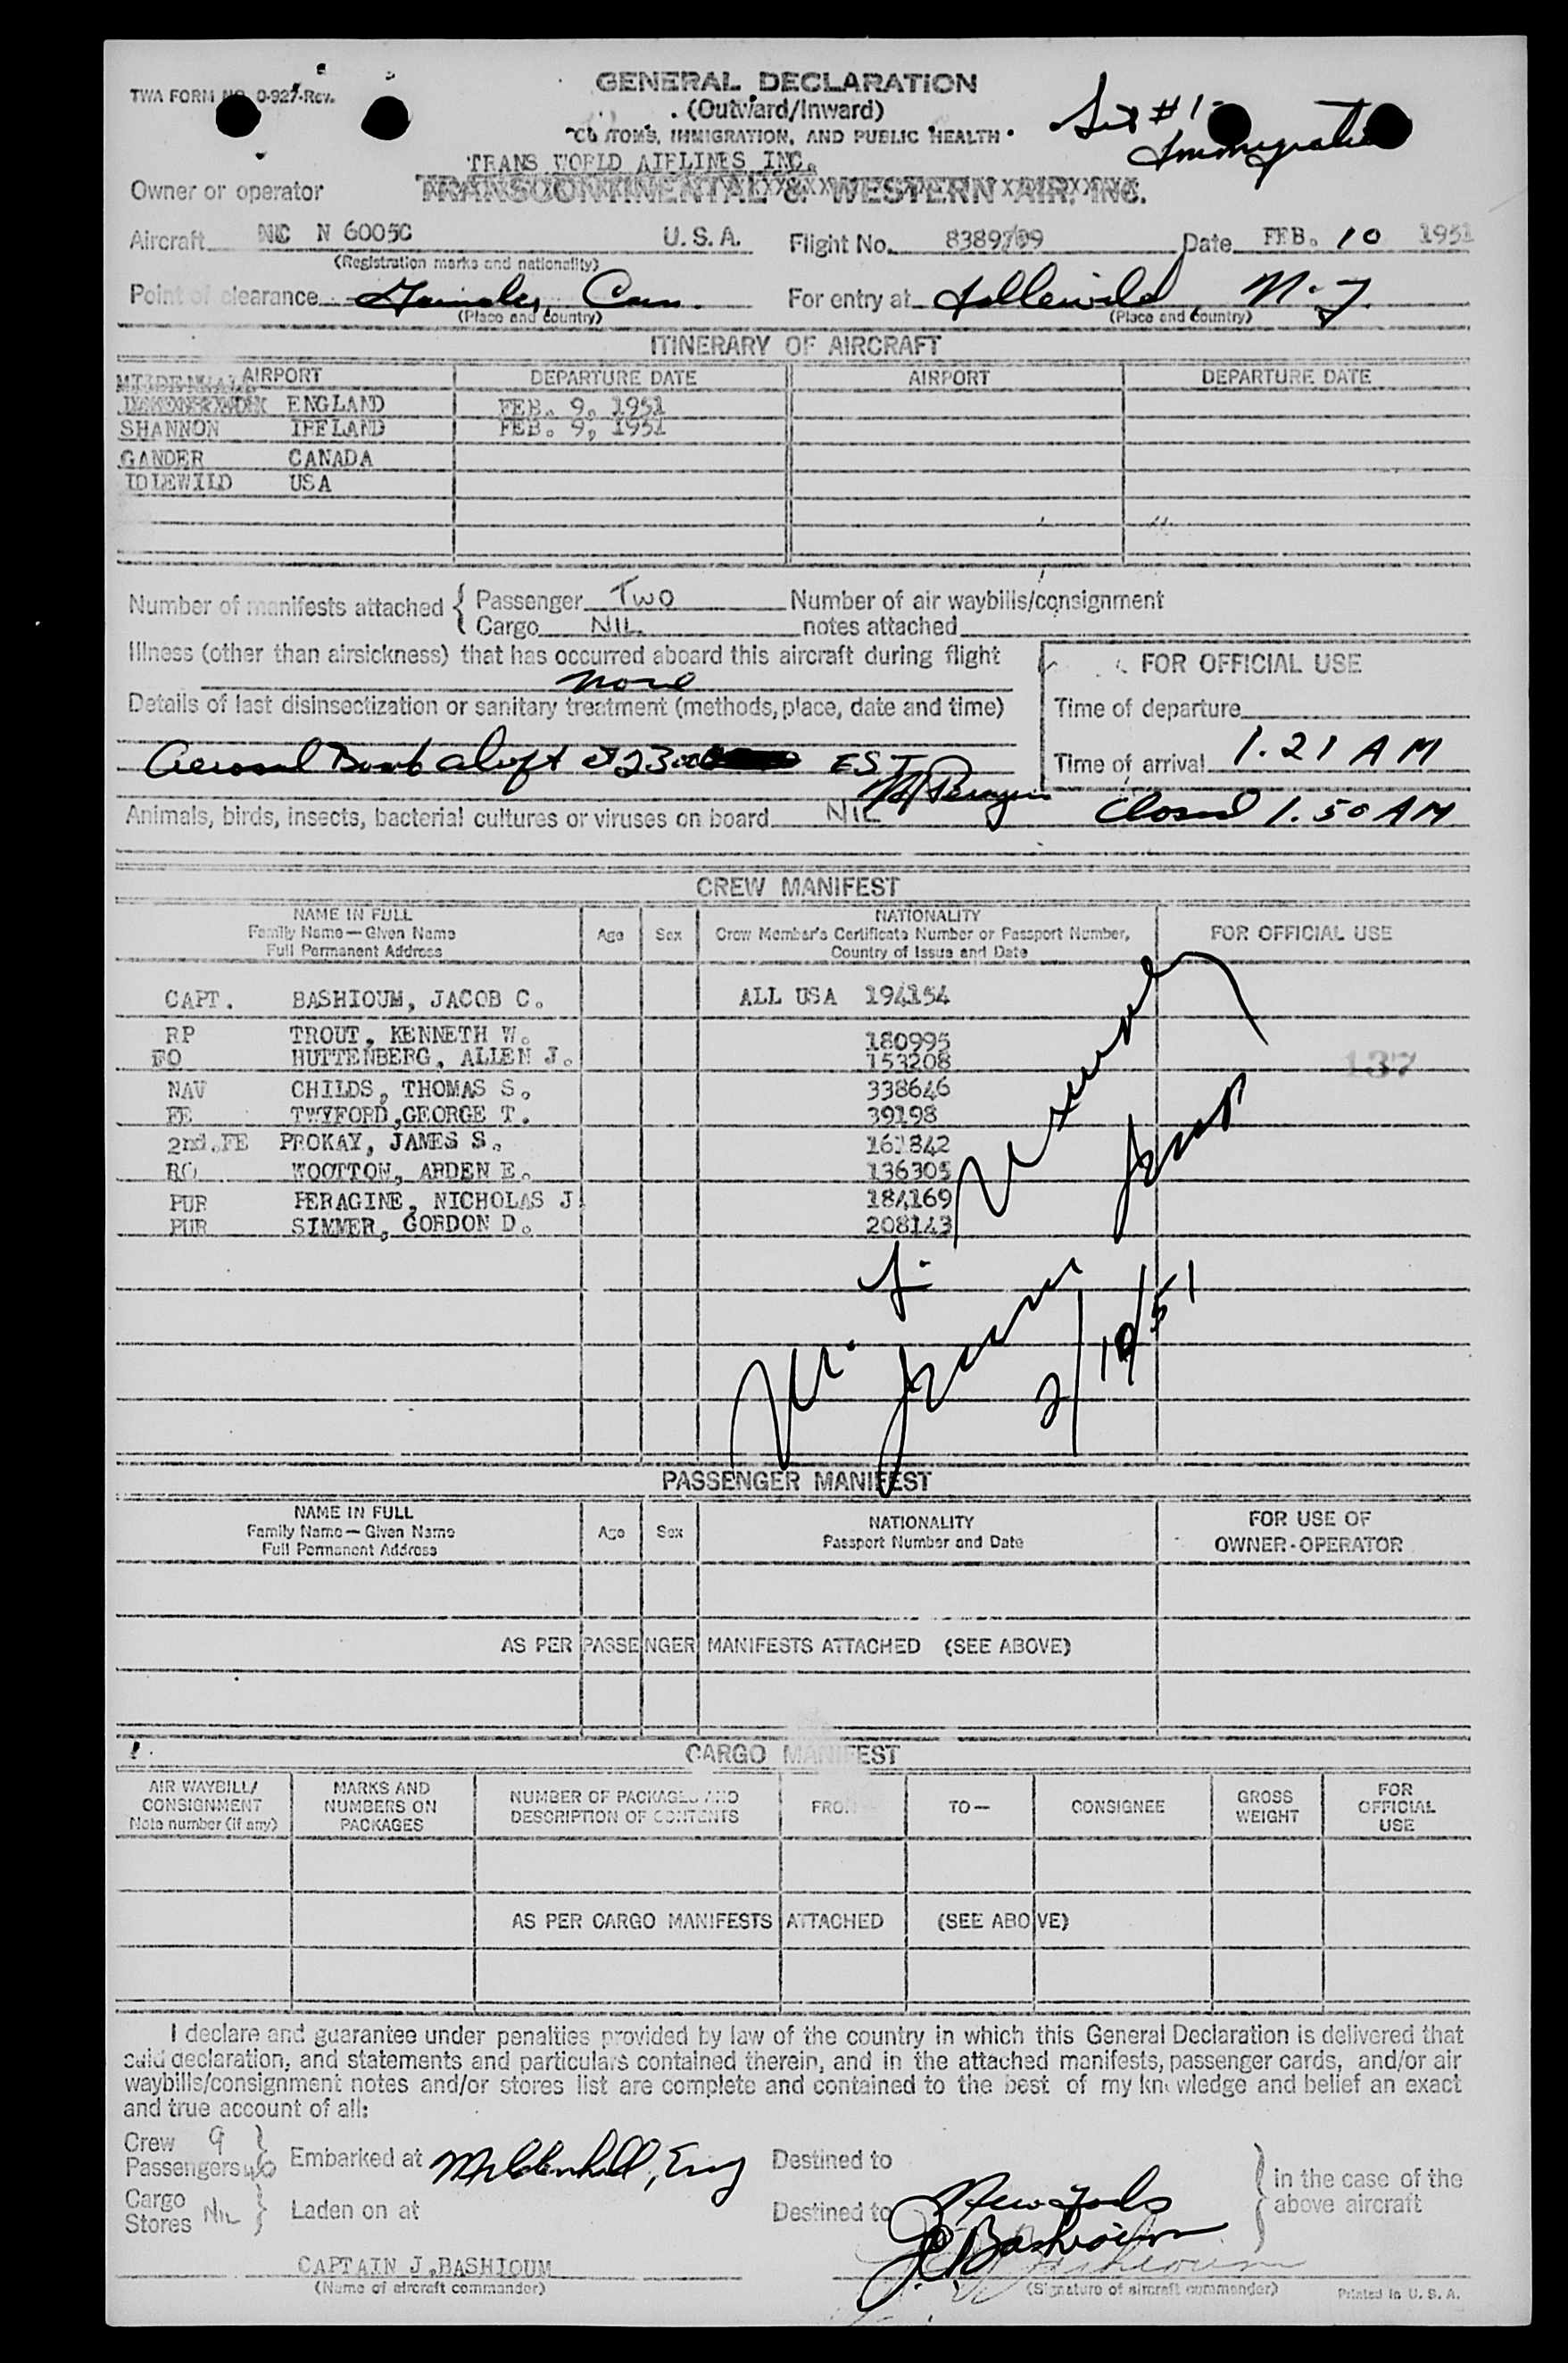 TWA FORM NO. 0-927-Rev.
GENERAL DECLARATION
(Outward/Inward)
CUSTOMS, IMMIGRATION, AND PUBLIC HEALTH
Set #1-
Immigration
TRANS WORLD AIRLINES INC.
Owner or operator TRANSCONTINENTAL & WESTERN AIR, INC.
Aircraft NC N 6005C U.S.A. Flight No. 8389/09 Date FEB. 10 1951
(Registration marks and nationality)
Point of clearance Can. For entry at Idlewild, N.Y.
(Place and country) (Place and country)
ITINERARY OF AIRCRAFT
AIRPORT DEPARTURE DATE AIRPORT DEPARTURE DATE
ENGLAND FEB. 9, 1951
SHANNON IRELAND FEB. 9, 1951
GANDER CANADA
IDLEWILD USA
Number of manifests attached { Passenger TWO Number of air waybills/consignment
Cargo NIL notes attached
Illness (other than airsickness) that has occurred aboard this aircraft during flight
None
FOR OFFICIAL USE
Details of last disinsectization or sanitary treatment (methods, place, date and time)
Time of departure
Aerosol Bomb aloft at 2300 EST
Time of arrival 1.21 AM
Animals, birds, insects, bacterial cultures or viruses on board NIL
Closed 1.50 AM
CREW MANIFEST
NAME IN FULL
Family Name—Given Name
Full Permanent Address
Age Sex
NATIONALITY
Crew Member's Certificate Number or Passport Number,
Country of Issue and Date
FOR OFFICIAL USE
CAPT. BASHIOUM, JACOB C. ALL USA 194154
RP TROUT, KENNETH W. 180995
FO HUTTENBERG, ALLEN J. 153208
137
NAV CHILDS, THOMAS S. 338646
FE TWYFORD,GEORGE T. 39198
2nd.FE PROKAY, JAMES S. 161842
RO WOOTTON, ARDEN E. 136305
PUR PERAGINE, NICHOLAS J. 184169
PUR SIMMER, GORDON D. 208143
2/10/51
PASSENGER MANIFEST
NAME IN FULL
Family Name—Given Name
Full Permanent Address
Age Sex
NATIONALITY
Passport Number and Date
FOR USE OF
OWNER-OPERATOR
AS PER PASSENGER MANIFESTS ATTACHED (SEE ABOVE)
CARGO MANIFEST
AIR WAYBILL/
CONSIGNMENT
Note number (if any)
MARKS AND
NUMBERS ON
PACKAGES
NUMBER OF PACKAGES AND
DESCRIPTION OF CONTENTS
FROM
TO—
CONSIGNEE
GROSS
WEIGHT
FOR
OFFICIAL
USE
AS PER CARGO MANIFESTS ATTACHED (SEE ABOVE)
I declare and guarantee under penalties provided by law of the country in which this General Declaration is delivered that
said declaration, and statements and particulars contained therein, and in the attached manifests, passenger cards, and/or air
waybills/consignment notes and/or stores list are complete and contained to the best of my knowledge and belief an exact
and true account of all:
Crew 9
Passengers 46 } Embarked at Mildenhall, Eng Destined to
Cargo
Stores NIL } Laden on at Destined to New York
} in the case of the
above aircraft
JC Bashioum
CAPTAIN J.BASHIOUM
(Name of aircraft commander) (Signature of aircraft commander)
Printed in U. S. A.